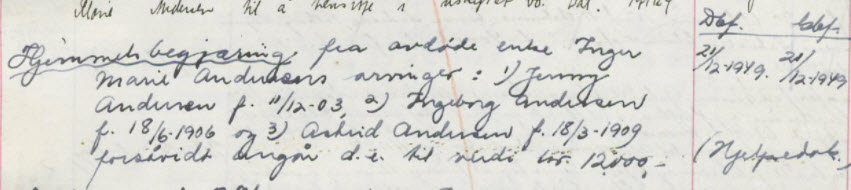 Marie Andersen til å henstå i uskiftet bo. Dat.
Hjemmelsbegjæring fra avdøde enke Inger
Marie Andersens arvinger: 1) Jenny
Andersen f. 11/12-03, 2) Ingeborg Andersen
f. 18/6-1906 og 3) Astrid Andersen f. 18/3-1909
forsåvidt angår d.e. til verdi kr. 12000,-
Dbf. Gbf.
21/12-1949. 21/12-1949
(Hjelpedok.